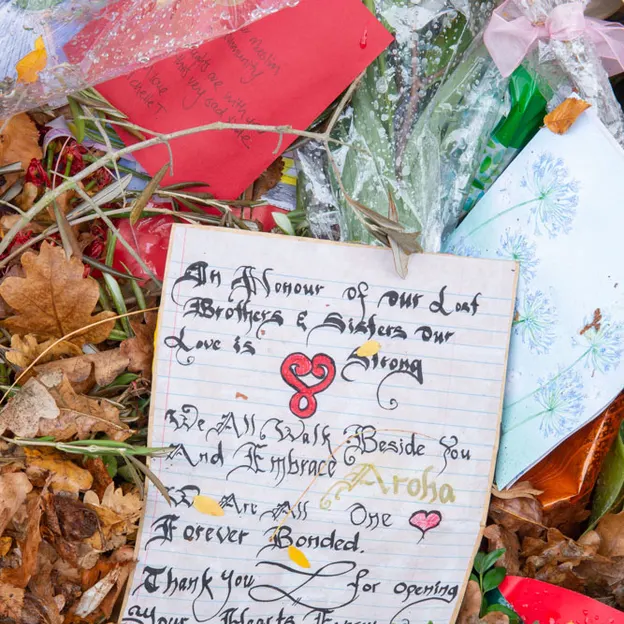 Muslim
community
with you
very sad
love
In Honour of our Lost
Brothers & Sisters our
Love is Strong
We All Walk Beside You
And Embrace Aroha
We Are All One
Forever Bonded.
Thank you for opening
Your Hearts